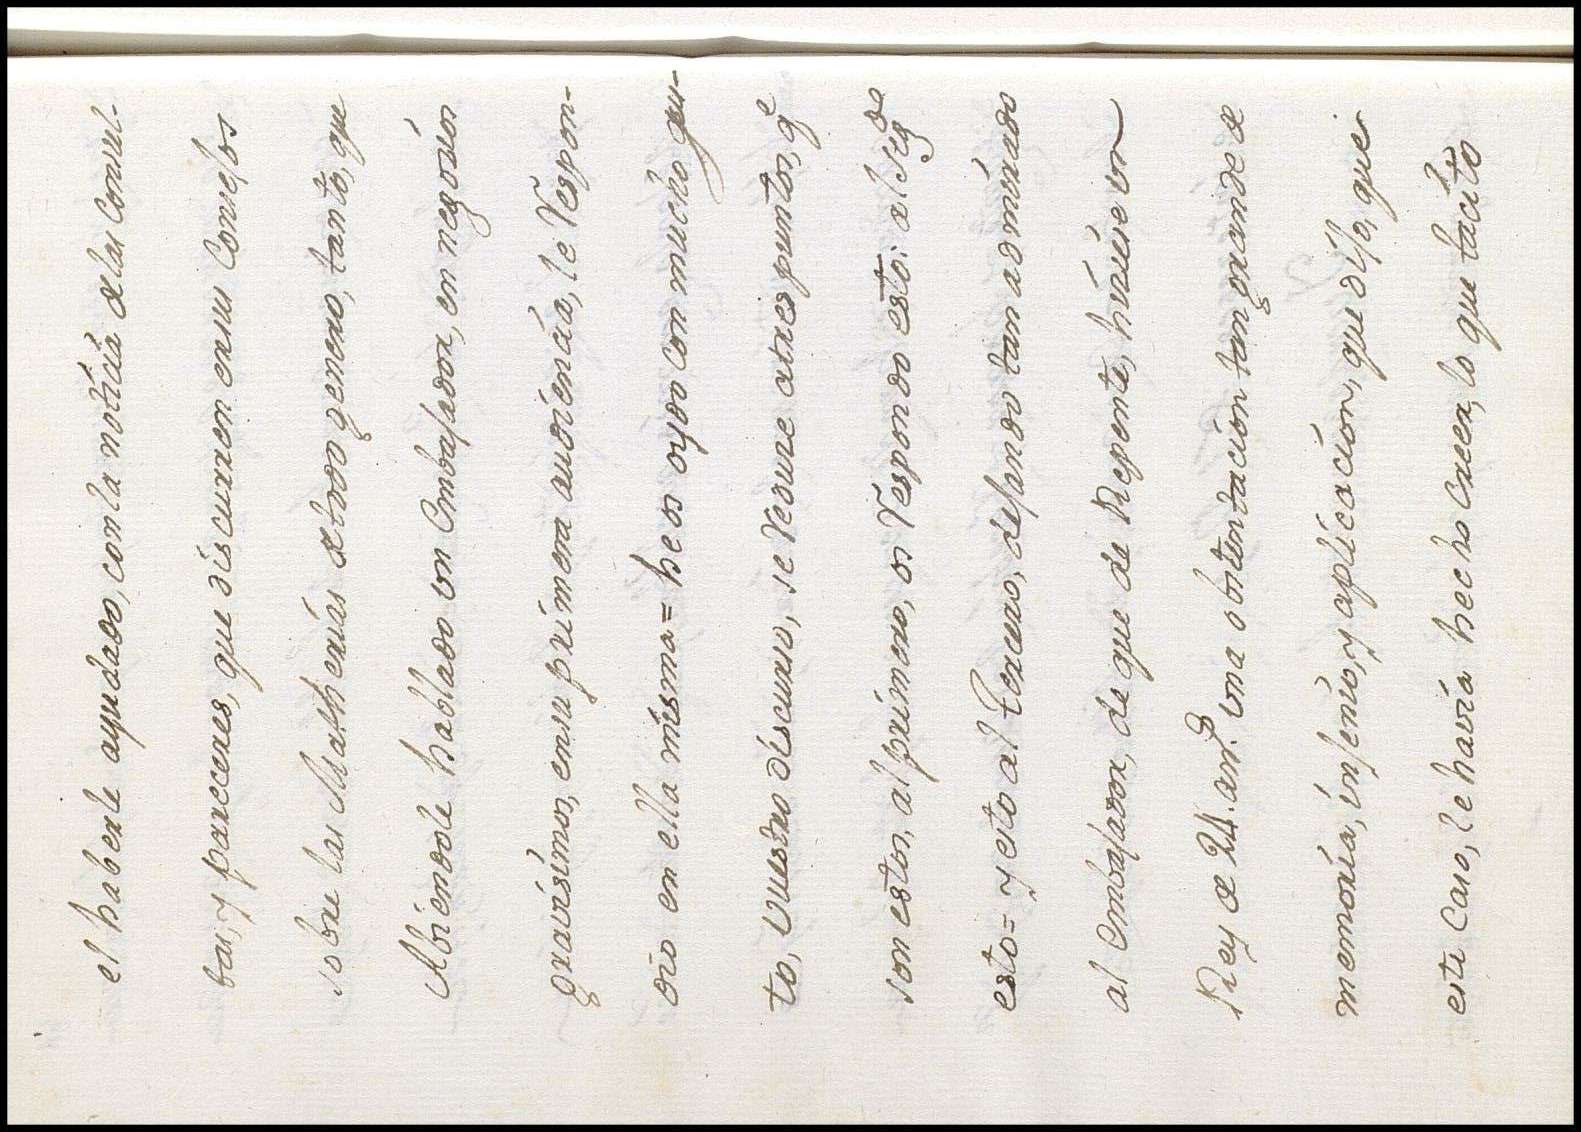 el haberle ayudado, con la noticia de las Consul-
tas, y pareceres, que discurren en sus Consejos
sobre las Matherias de todo genero, tanto, que
Abiendole hablado un Embajador, en negocios
gravisimos, en su primera audiencia, le respon-
dio en ella misma = he os oydo con mucho gus-
to, vuestro discurso, se reduce a tres puntos, q.e
son estos, al primero, os respondo esto: al seg.do
esto = y esto al tercero, dejando tan admirado
al Embajador, de que de Repente, huviese un
Rey de 24. añ.s una obstentacion tan grande de
memoria, injenio, y aplicacion, que dijo, que
este caso, le havia hecho creer, lo que tacito